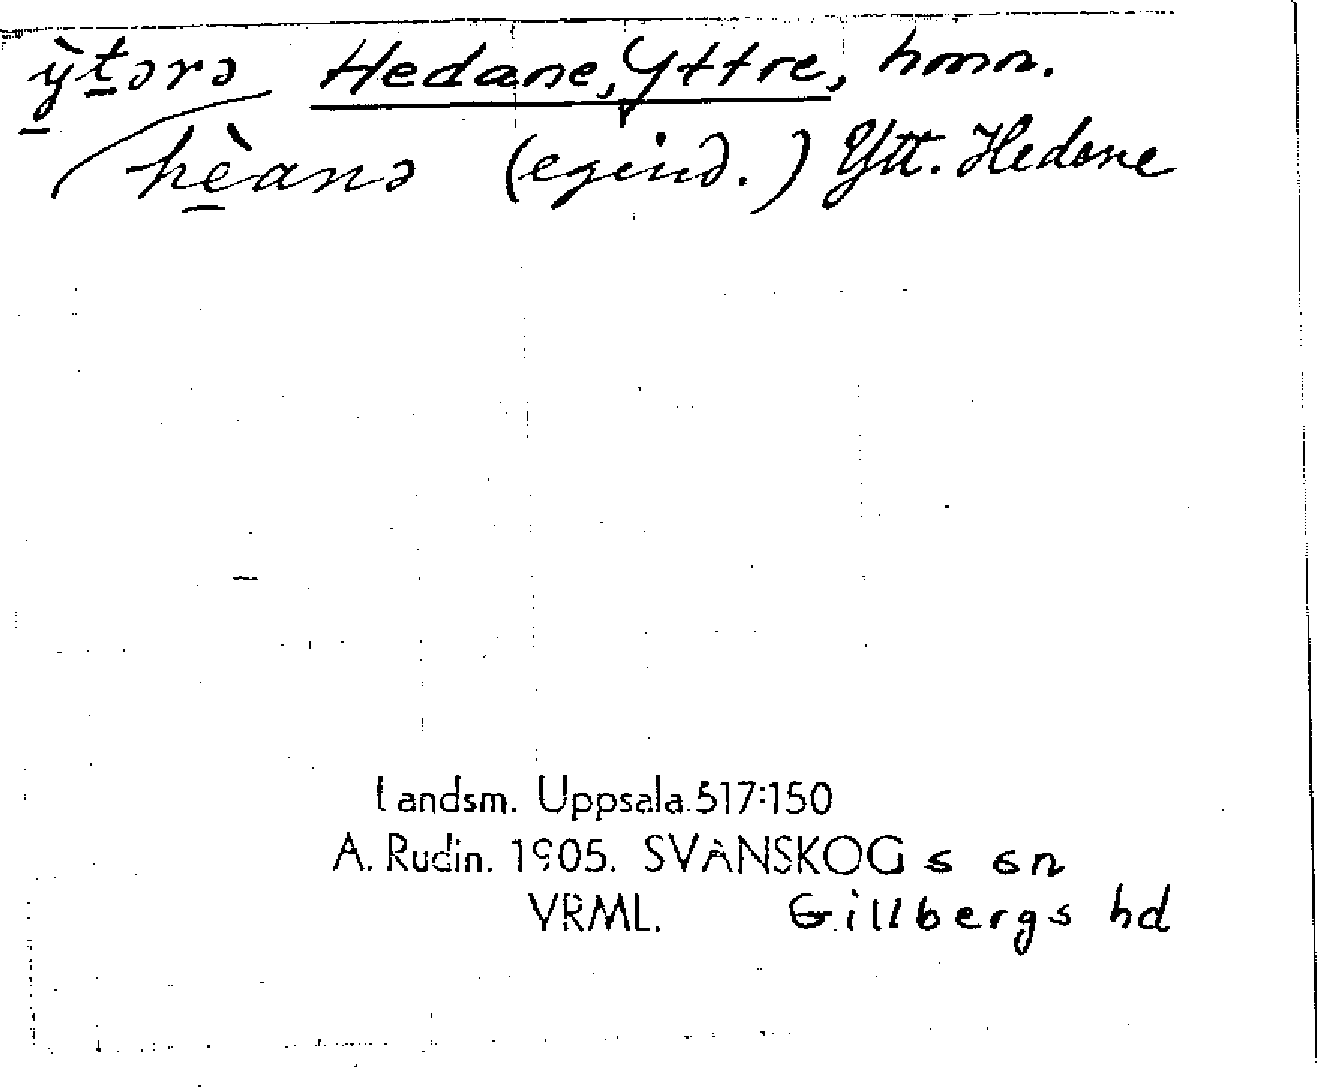 ỳtərə Hedane, Yttre, hmn.
hèanə (egend.) Ytt. Hedane
Landsm. Uppsala 517:150
A. Rudin. 1905. SVANSKOG s sn
VRML. Gillbergs hd